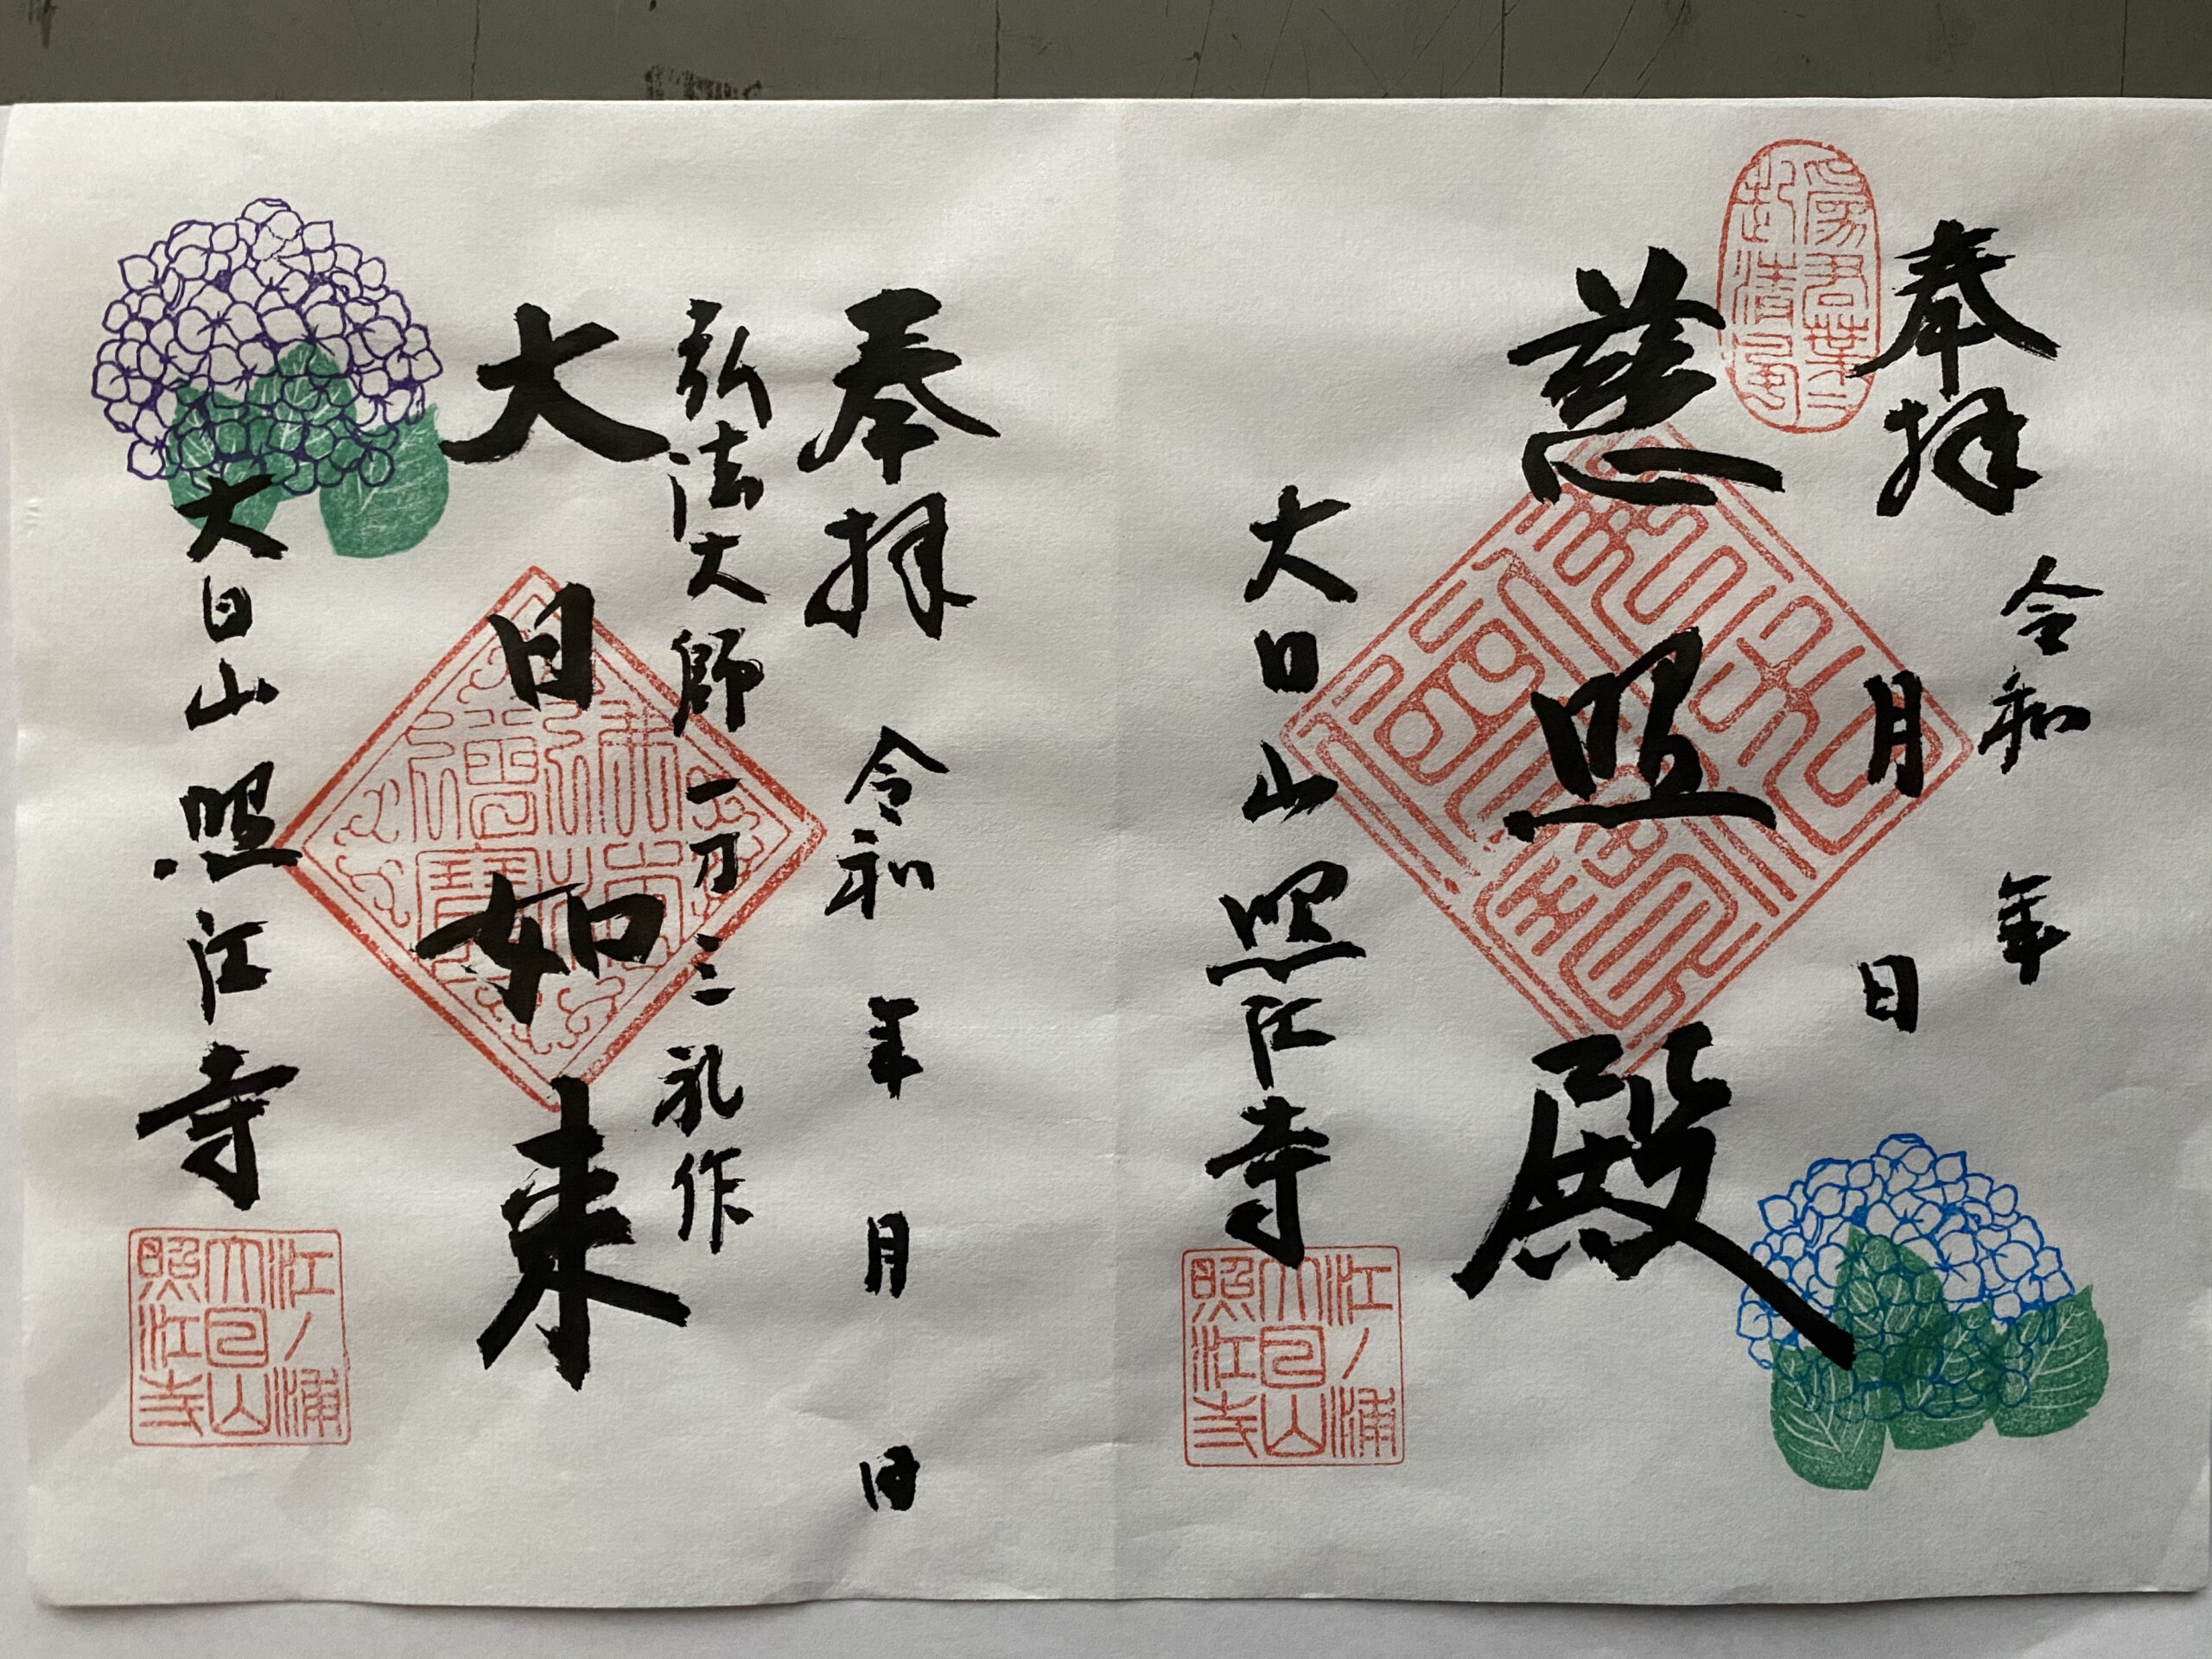 奉拝
令和 年
月 日
慈照殿
大日山照江寺
江ノ浦
大日山
照江寺
奉拝
令和 年 月 日
弘法大師一刀三礼作
大日如来
大日山照江寺
江ノ浦
大日山
照江寺